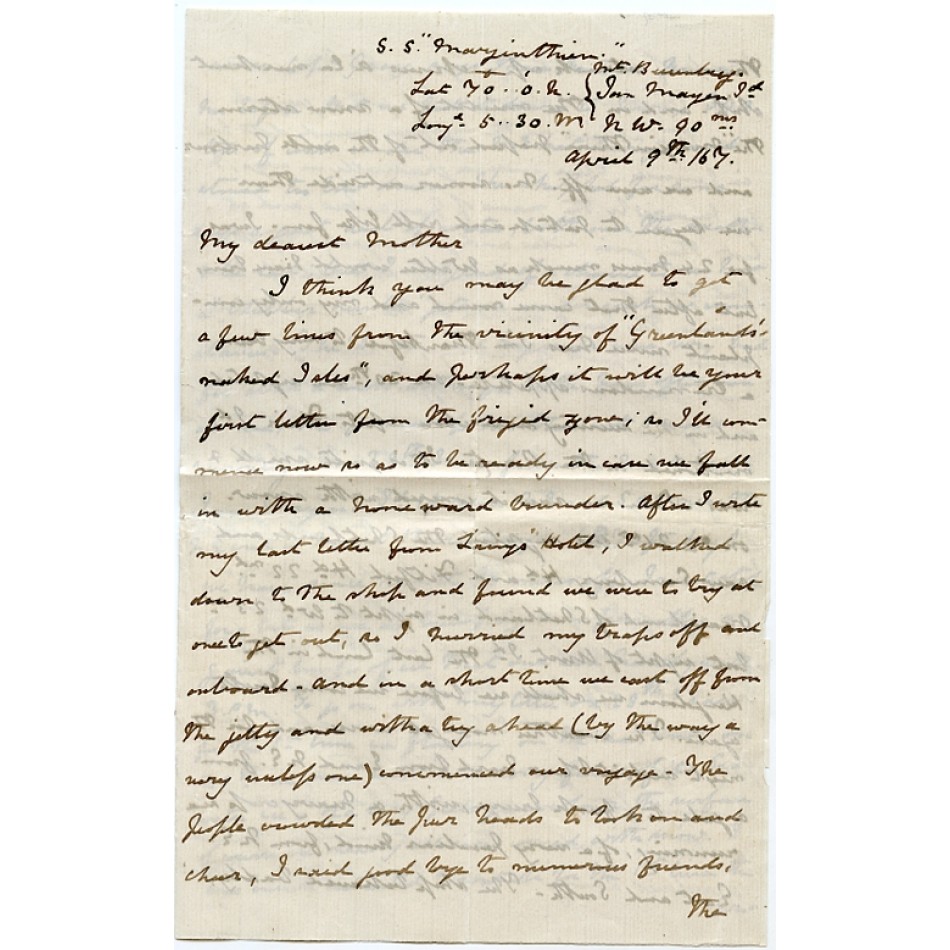 S. S. "Mazinthien."
Lat 70°..0'. N. { Mt. Beerenberg.
Jan Mayen Id
Longd 5..30. W { N. W. 90 ms
April 9th /67.
My dearest Mother
I think you may be glad to get
a few lines from the vicinity of "Greenland's
naked Isles", and perhaps it will be your
first letter from the frigid zone; so I'll com-
mence now so as to be ready in case we fall
in with a homeward bounder. After I wrote
my last letter from Laings Hotel, I walked
down to the ship and found we were to try at
once to get out, so I hurried my traps off and
onboard - and in a short time we cast off from
the jetty and with a tug ahead (by the way a
very useless one) commenced our voyage - The
people crowded the pier heads to look on and
cheer, I said good bye to numerous friends,
the